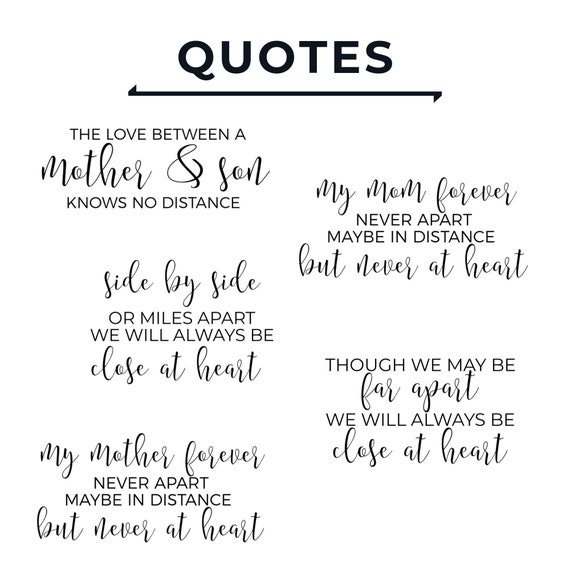 QUOTES
THE LOVE BETWEEN A
mother & son
KNOWS NO DISTANCE
my mom forever
NEVER APART
MAYBE IN DISTANCE
but never at heart
side by side
OR MILES APART
WE WILL ALWAYS BE
close at heart
THOUGH WE MAY BE
far apart
WE WILL ALWAYS BE
close at heart
my mother forever
NEVER APART
MAYBE IN DISTANCE
but never at heart